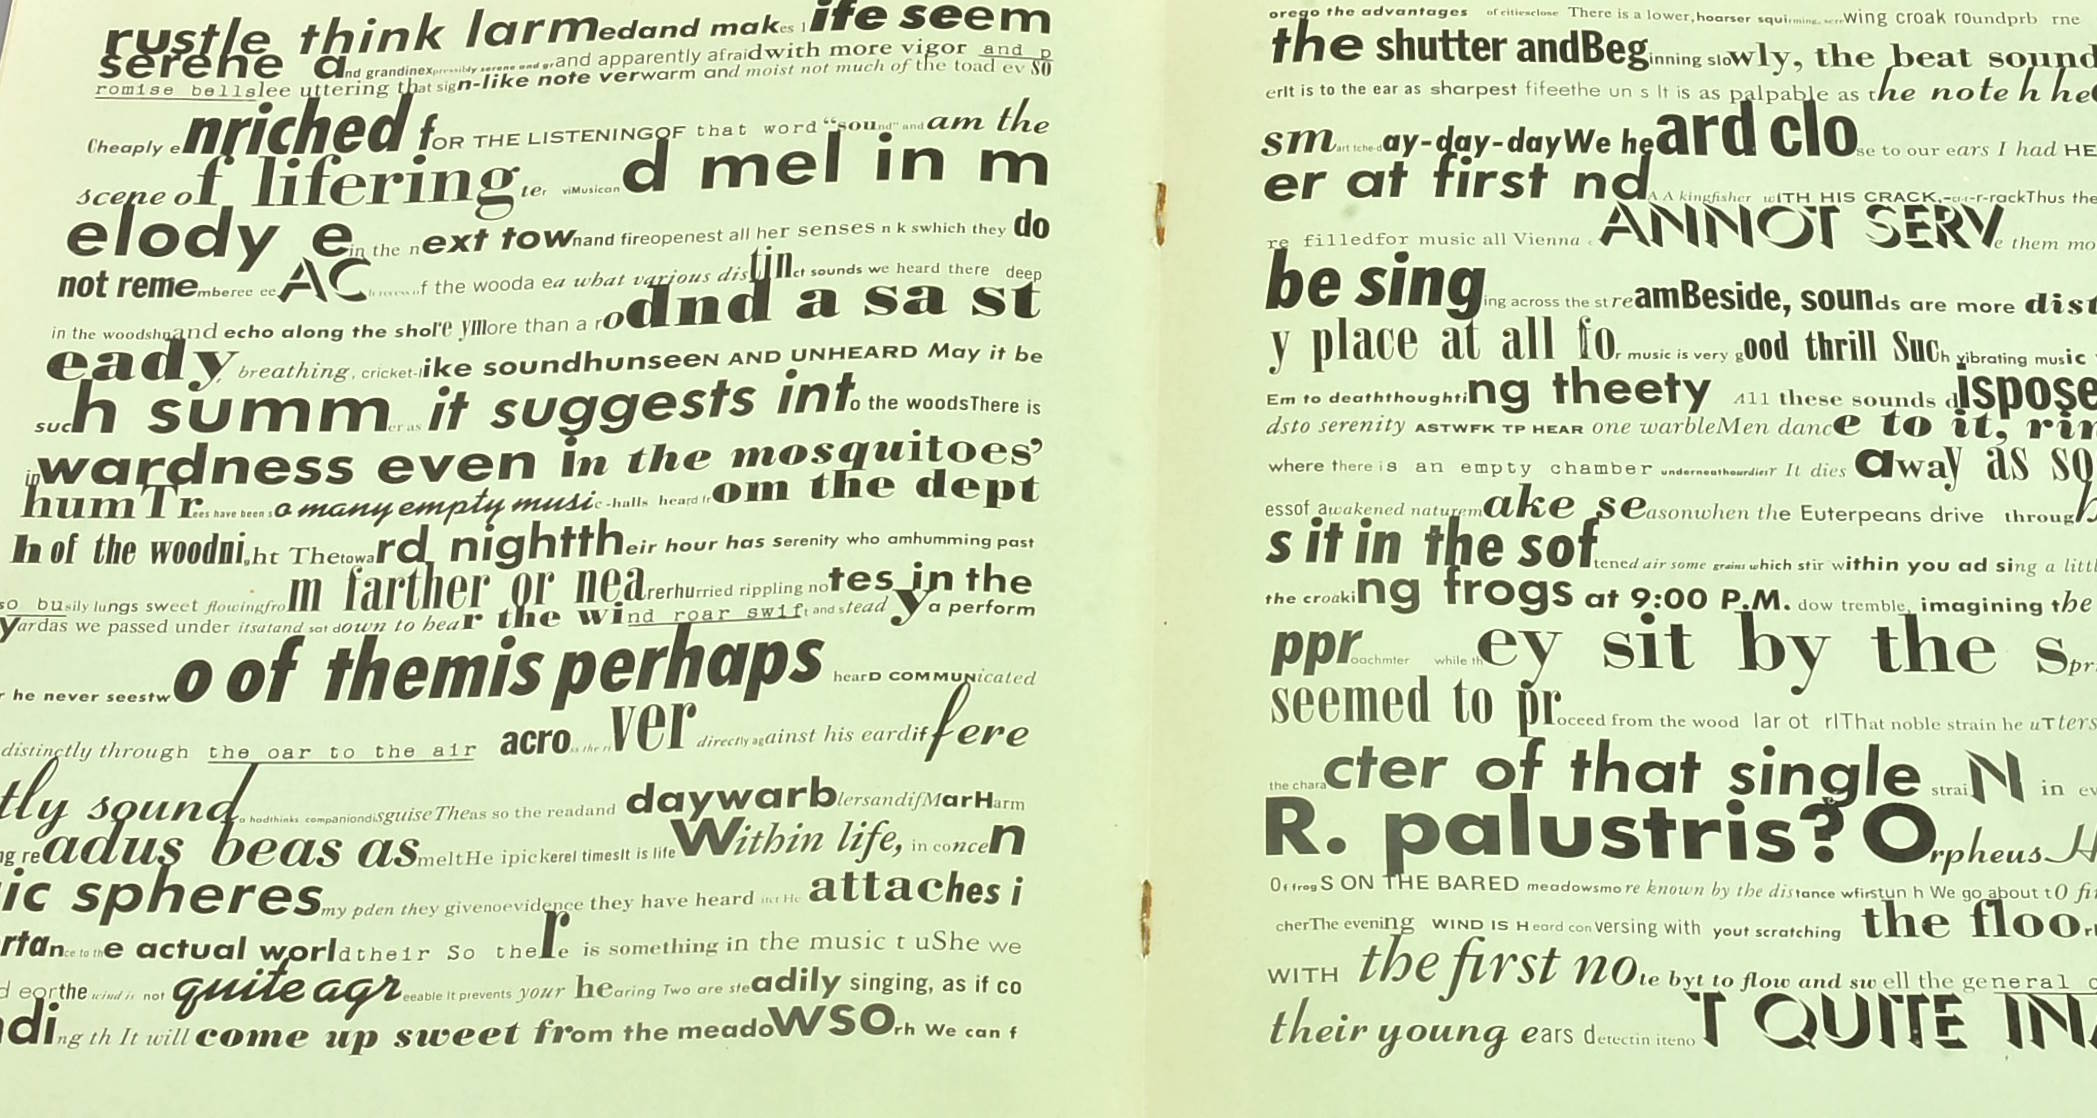 rustle think larmedand makes life seem
serene and grandinexpressibly serene and grand apparently afraidwith more vigor and p
romise bellslee uttering that sign-like note verwarm and moist not much of the toad ev so
Cheaply enriched fOR THE LISTENINGOF that word "sound" and am the
scene of lifering ter viMusican d mel in m
elody e in the next townand fireopenest all her senses n k swhich they do
not rememberee ee AC f the wooda ea what various distinct sounds we heard there deep
in the woodshnand echo along the shore ymore than a rodnd a sa st
eady, breathing, cricket-like soundhunseeN AND UNHEARD May it be
such summer as it suggests into the woodsThere is
inwardness even in the mosquitoes'
humTrees have been so many empty music-halls heard from the dept
h of the woodni,ht Thetoward nightth eir hour has serenity who amhumming past
so busily lungs sweet flowingfrom farther or nearerhurried rippling notes in the
yardas we passed under itsatand sat down to hear the wind roar swift and steady a perform
r he never seestwo of themis perhaps hearD COMMUNicated
distinctly through the oar to the air across the river directly against his eardiffere
tly sound, a hadthinks companiondisguise Theas so the readand daywarblersandifMarHarm
ng readus beas asmeltHe ipickerel timesIt is life Within life, in concen
ric spheres my pden they givenoevidence they have heard inct He attaches i
rtance to the actual worldtheir So there is something in the music t uShe we
d eorthe wind is not quite agreeable It prevents your hearing Two are steadily singing, as if co
nding th It will come up sweet from the meadoWSOrh We can f
orego the advantages of citiesclose There is a lower,hoarser squirming, screwing croak roundprb rne
the shutter andBeginning slowly, the beat sound
erIt is to the ear as sharpest fifeethe un s It is as palpable as the note h he
smart tche-day-day-dayWe heard close to our ears I had HE
er at first nd A A kingfisher wITH HIS CRACK,-cr-r-rackThus the
re filledfor music all Vienna c ANNOT SERVe them mo
be singing across the streamBeside, sounds are more dist
y place at all for music is very good thrill Such vibrating music
Em to deaththoughting theety All these sounds dispose
dsto serenity ASTWFK TP HEAR one warbleMen dance to it, rin
where there is an empty chamber underneathourdiesr It dies away as so
essof awakened naturemake seasonwhen the Euterpeans drive through
s it in the softened air some grains which stir within you ad sing a littl
the croaking frogs at 9:00 P.M. dow tremble, imagining the
pproachmter while they sit by the spr
seemed to proceed from the wood lar ot rlThat noble strain he uTters
the character of that single straiN in ev
R. palustris? Orpheus H
Of frogS ON THE BARED meadowsmo re known by the distance wfirstun h We go about tO fi
cherThe evening WIND IS Heard conversing with yout scratching the floor
WITH the first note byt to flow and sw ell the general c
their young ears detectin itenoT QUITE IN